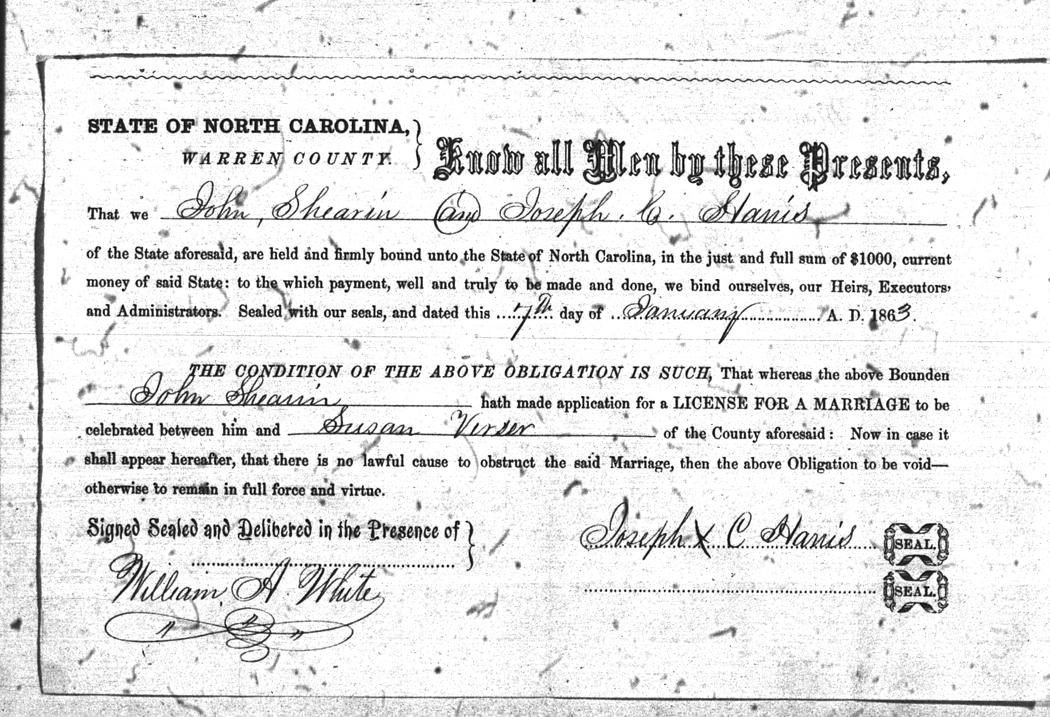 STATE OF NORTH CAROLINA,
WARREN COUNTY.
Know all Men by these Presents,
That we John, Shearin and Joseph. C. Harris
of the State aforesaid, are held and firmly bound unto the State of North Carolina, in the just and full sum of $1000, current
money of said State: to the which payment, well and truly to be made and done, we bind ourselves, our Heirs, Executors,
and Administrators. Sealed with our seals, and dated this 7th day of January A. D. 1863.
THE CONDITION OF THE ABOVE OBLIGATION IS SUCH, That whereas the above Bounden
John Shearin hath made application for a LICENSE FOR A MARRIAGE to be
celebrated between him and Susan Verser of the County aforesaid: Now in case it
shall appear hereafter, that there is no lawful cause to obstruct the said Marriage, then the above Obligation to be void—
otherwise to remain in full force and virtue.
Signed Sealed and Delibered in the Presence of
Joseph X C Harris SEAL.
William, A. White
SEAL.